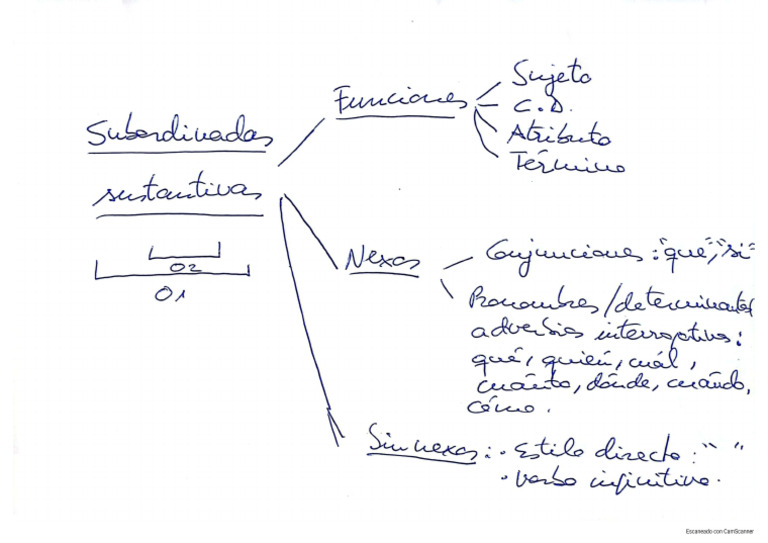 Subordinadas
sustantivas
O2
O1
Funciones
Sujeto
C.D.
Atributo
Término
Nexos
Conjunciones: "que", "si"
Pronombres/determinantes
adverbios interrogativos:
qué, quién, cuál,
cuánto, dónde, cuándo,
cómo.
Sin nexos: · Estilo directo: " "
· verbo infinitivo.
Escaneado con CamScanner